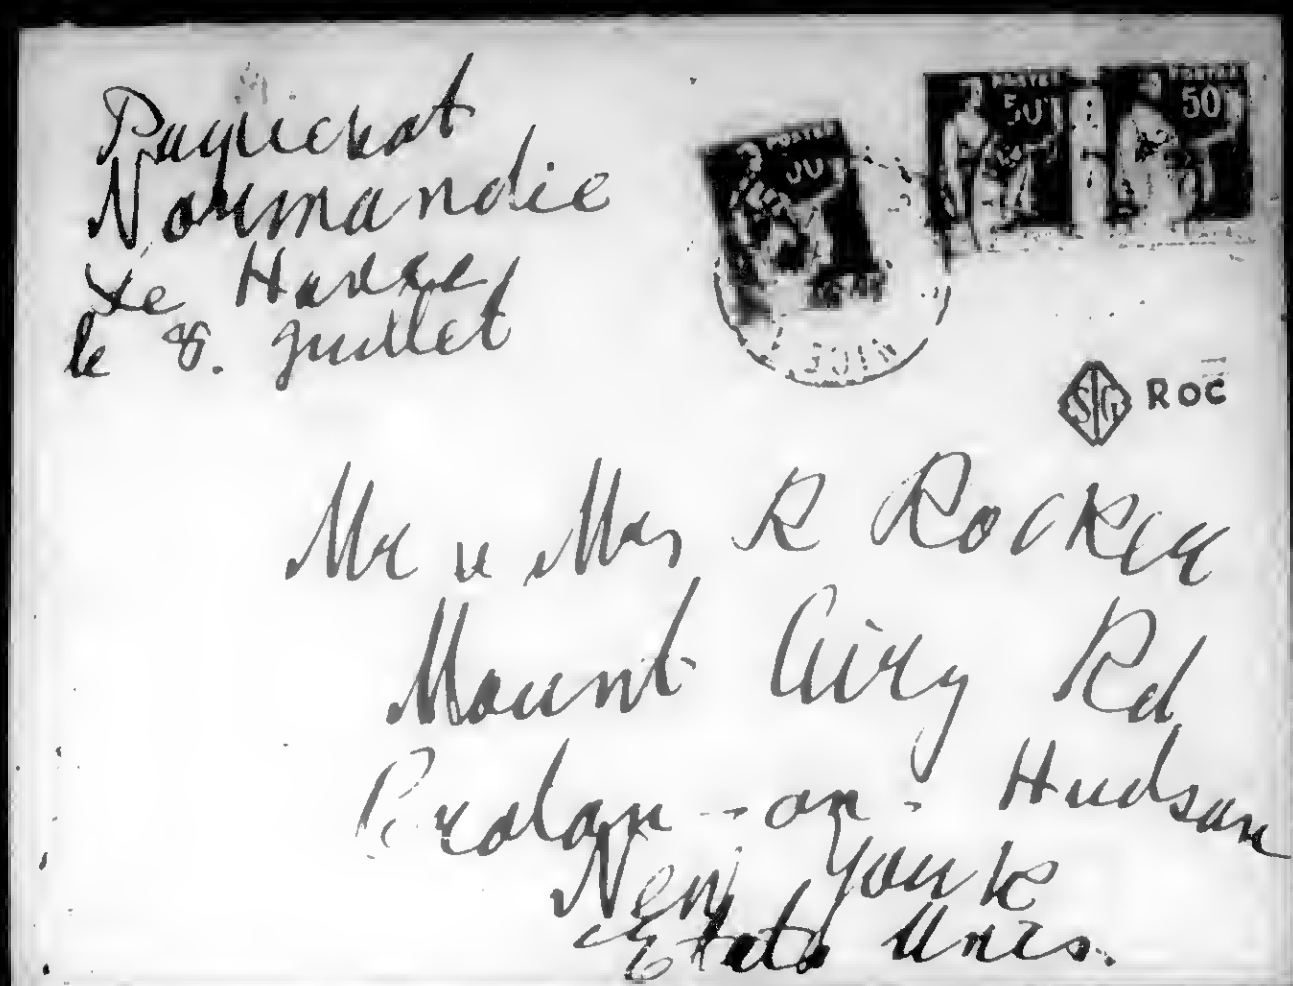 Paquebot
Normandie
Le Havre
le 8. Juillet
POSTES
POSTES
50
POSTES
50
SG ROC
Mr u Mrs R Rocker
Mount Airy Rd
Croton - on - Hudson
New York
Etats Unis.